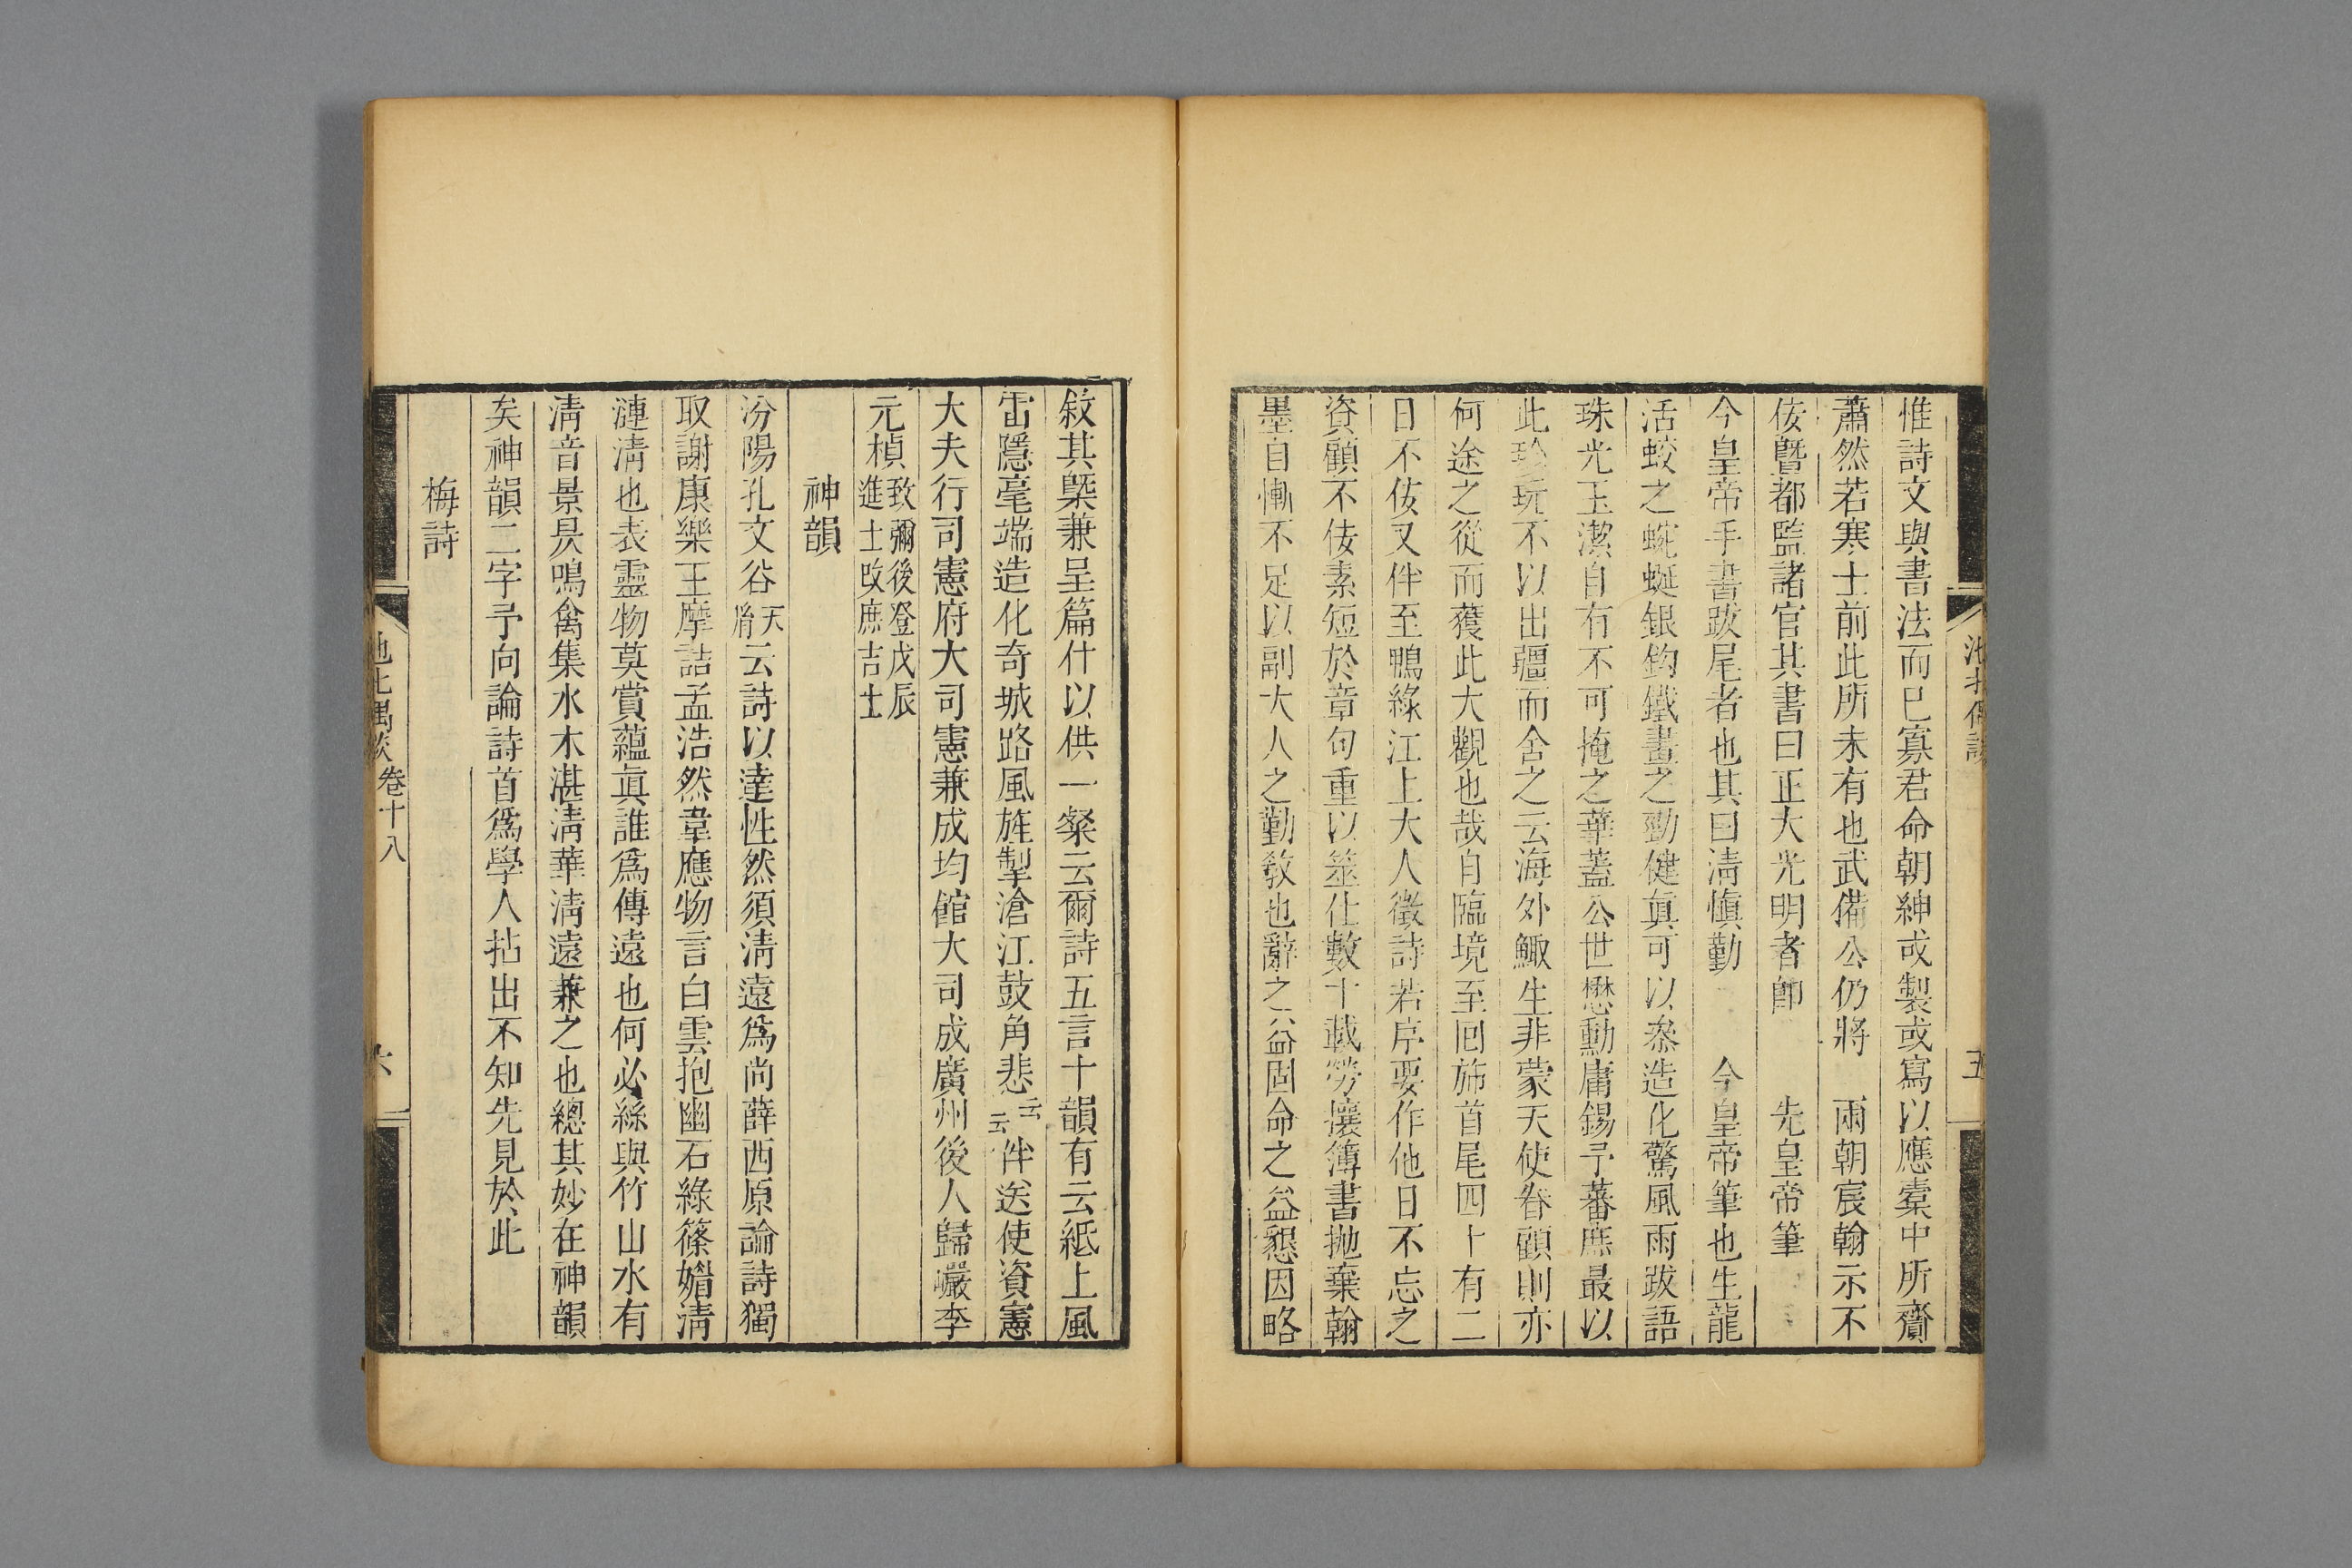 惟詩文與書法而已寡君命朝紳或製或寫以應橐中所齎
蕭然若寒士前此所未有也武備公仍將 兩朝宸翰示不
佞曁都監諸官其書曰正大光明者卽 先皇帝筆
今皇帝手書跋尾者也其曰淸愼勤 今皇帝筆也生龍
活蛟之蜿蜒銀鉤鐵畫之勁健眞可以叅造化驚風雨跋語
珠光玉潔自有不可掩之華蓋公世懋勳庸錫予蕃庶最以
此珍玩不以出疆而舍之云海外鯫生非蒙天使眷顧則亦
何途之從而獲此大觀也哉自臨境至回旆首尾四十有二
日不佞又伴至鴨綠江上大人徵詩若序要作他日不忘之
資顧不佞素短於章句重以筮仕數十載勞攘簿書抛棄翰
墨自慚不足以副大人之勤敎也辭之益固命之益懇因略
敍其槩兼呈篇什以供一粲云爾詩五言十韻有云紙上風
雷隱毫端造化奇城路風旌掣滄江鼓角悲云云伴送使資憲
大夫行司憲府大司憲兼成均館大司成廣州後人歸巖李
元楨致彌後登戊辰進士改庶吉士
神韻
汾陽孔文谷天胤云詩以達性然須淸遠爲尚薛西原論詩獨
取謝康樂王摩詰孟浩然韋應物言白雲抱幽石綠篠媚淸
漣淸也表靈物莫賞蘊眞誰爲傳遠也何必絲與竹山水有
淸音景昃鳴禽集水木湛淸華淸遠兼之也總其妙在神韻
矣神韻二字予向論詩首爲學人拈出不知先見於此
梅詩
池北偶談 卷十八 六
池北偶談 五